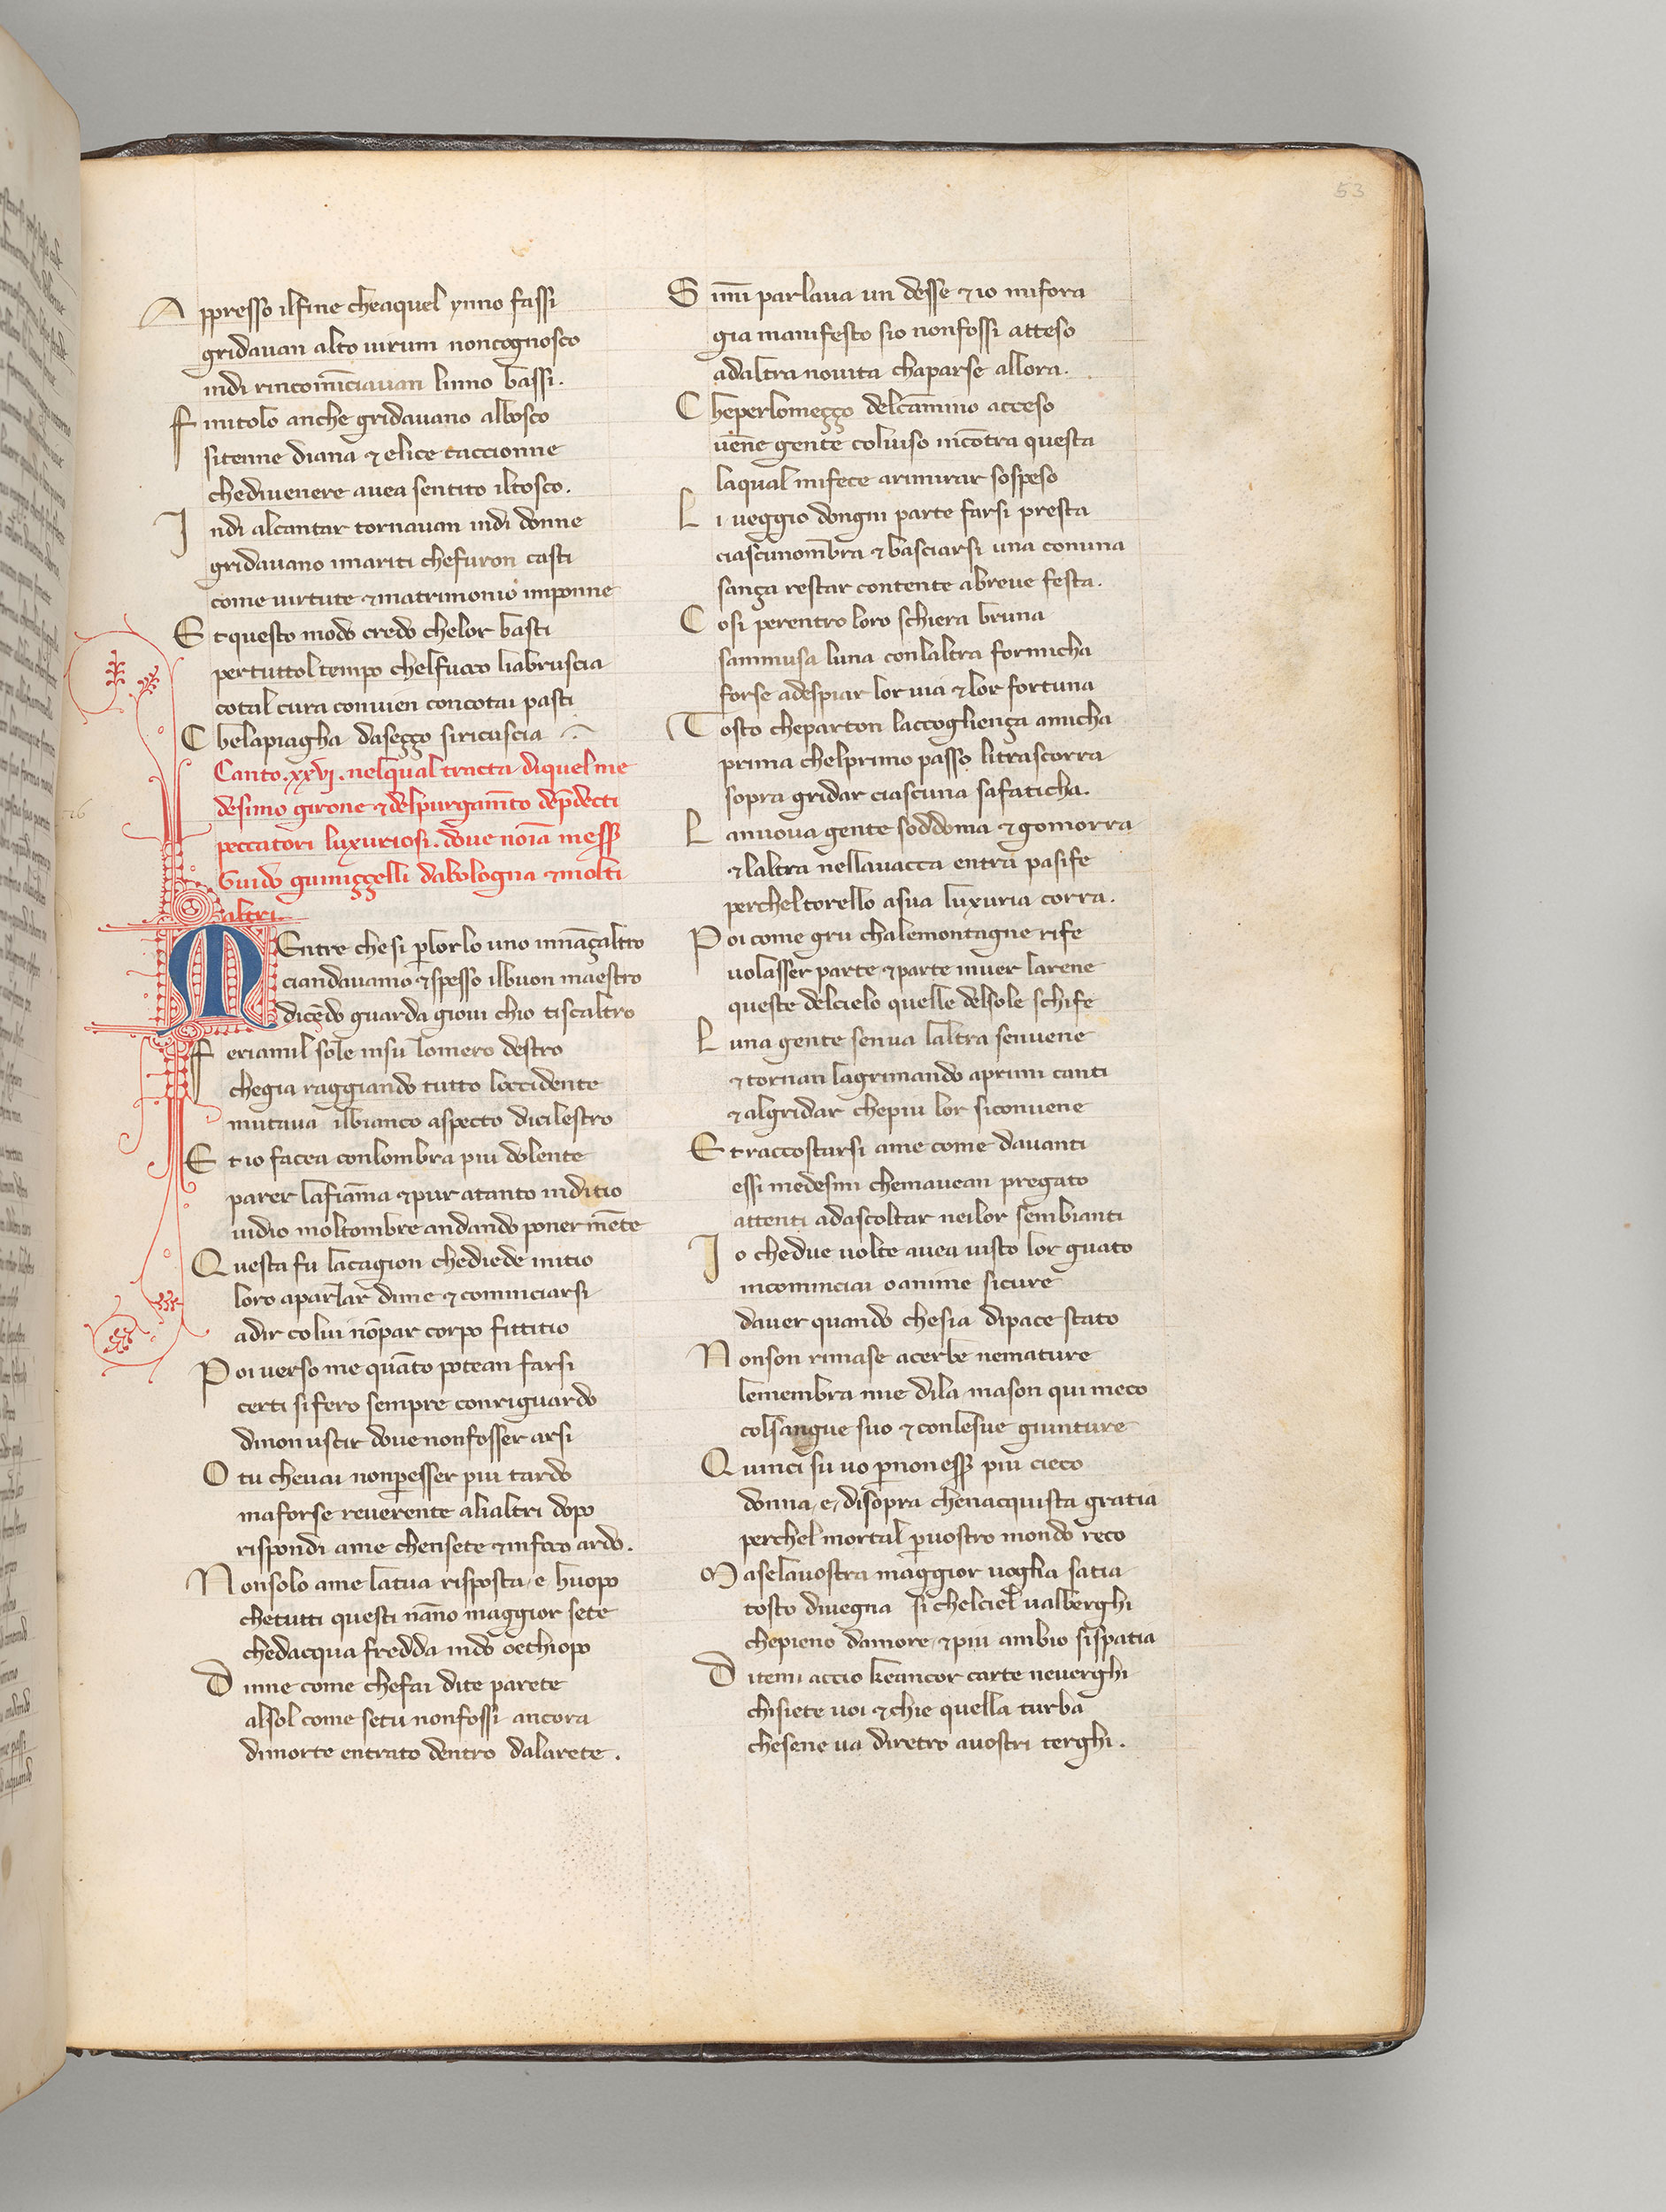 53
Appresso ilfine cheaquel ynno fassi
gridauan alto uirum noncognosco
indi rincomīciauan linno bassi.
Finitolo anche gridauano albosco
sitenne diana & elice caccionne
chediuenere auea sentito iltosco.
Indi alcantar tornauan indi donne
gridauano imariti chefuron casti
come uirtute & matrimonio imponne
Et questo modo credo chelor basti
pertuttol tempo chelfuoco liabruscia
cotal cura conuien concotai pasti
Chelapiagha dasezzo siricuscia
Canto .xxvj. nelqual tracta diquel me
desimo girone & delpurgamēto dep̄decti
peccatori luxuriosi. doue noīa mess̄
Guido guinizzelli dabologna & molti
altri
MEntre chesi ꝑlorlo uno innāçaltro
ciandauamo & spesso ilbuon maestro
dicēdo guarda gioui chio tiscaltro
Feriamil sole insu lomero destro
chegia raggiando tutto loccidente
mutaua ilbianco aspecto dicilestro
Et io facea conlombra piu dolente
parer lafiāma & pur atanto inditio
uidio moltombre andando poner mēte
Questa fu lacagion chediede initio
loro aparlar dime & cominciarsi
adir colui nōpar corpo fittitio
Poi uerso me quāto potean farsi
certi sifero sempre conriguardo
dinon uscir doue nonfosser arsi
O tu cheuai nonꝑesser piu tardo
maforse reuerente alialtri dopo
rispondi ame chensete & infoco ardo.
Nonsolo ame latua risposta e huopo
chetutti questi nāno maggior sete
chedacqua fredda indo oethiopo
Dinne come chefai dite parete
alsol come setu nonfossi ancora
dimorte entrato dentro dalarete.
Simi parlaua un desse & io mifora
gia manifesto sio nonfossi atteso
adaltra nouita chaparse allora.
Cheperlomezzo delcamino acceso
uēne gente coluiso incōtra questa
laqual mifece arimirar sospeso
Li ueggio dongni parte farsi presta
ciascunombra & basciarsi una conuna
sança restar contente abreue festa.
Cosi perentro loro schiera bruna
sammusa luna conlaltra formicha
forse adespiar lor uia & lor fortuna
Tosto cheparton laccogliença amicha
prima chelprimo passo litrascorra
sopra gridar ciascuna safaticha.
Lanuoua gente soddoma & gomorra
& laltra nellauacca entra pasife
percheltorello asua luxuria corra.
Poi come gru chalemontagne rife
uolasser parte & parte inuer larene
queste delcielo quelle delsole schife
Luna gente senua laltra senuene
& tornan lagrimando aprimi canti
& algridar chepiu lor siconuene
Et raccostarsi ame come dauanti
essi medesmi chemauean pregato
attenti adascoltar neilor sembianti
Io chedue uolte auea uisto lor guato
incominciai oanime sicure
dauer quando chesia dipace stato
Nonson rimase acerbe nemature
lemembra mie dila mason qui meco
colsangue suo & conlesue giunture
Quinci su uo ꝑnoness̄ piu cieco
donna e disopra chenacquista gratia
perchel mortal ꝑuostro mondo reco
Maselauostra maggior uoglia satia
tosto diuegna si chelciel ualberghi
chepieno damore & piu ambio sispatia
Ditemi accio keancor carte neuerghi
chisiete uoi & chie quella turba
chesene ua diretro auostri terghi.